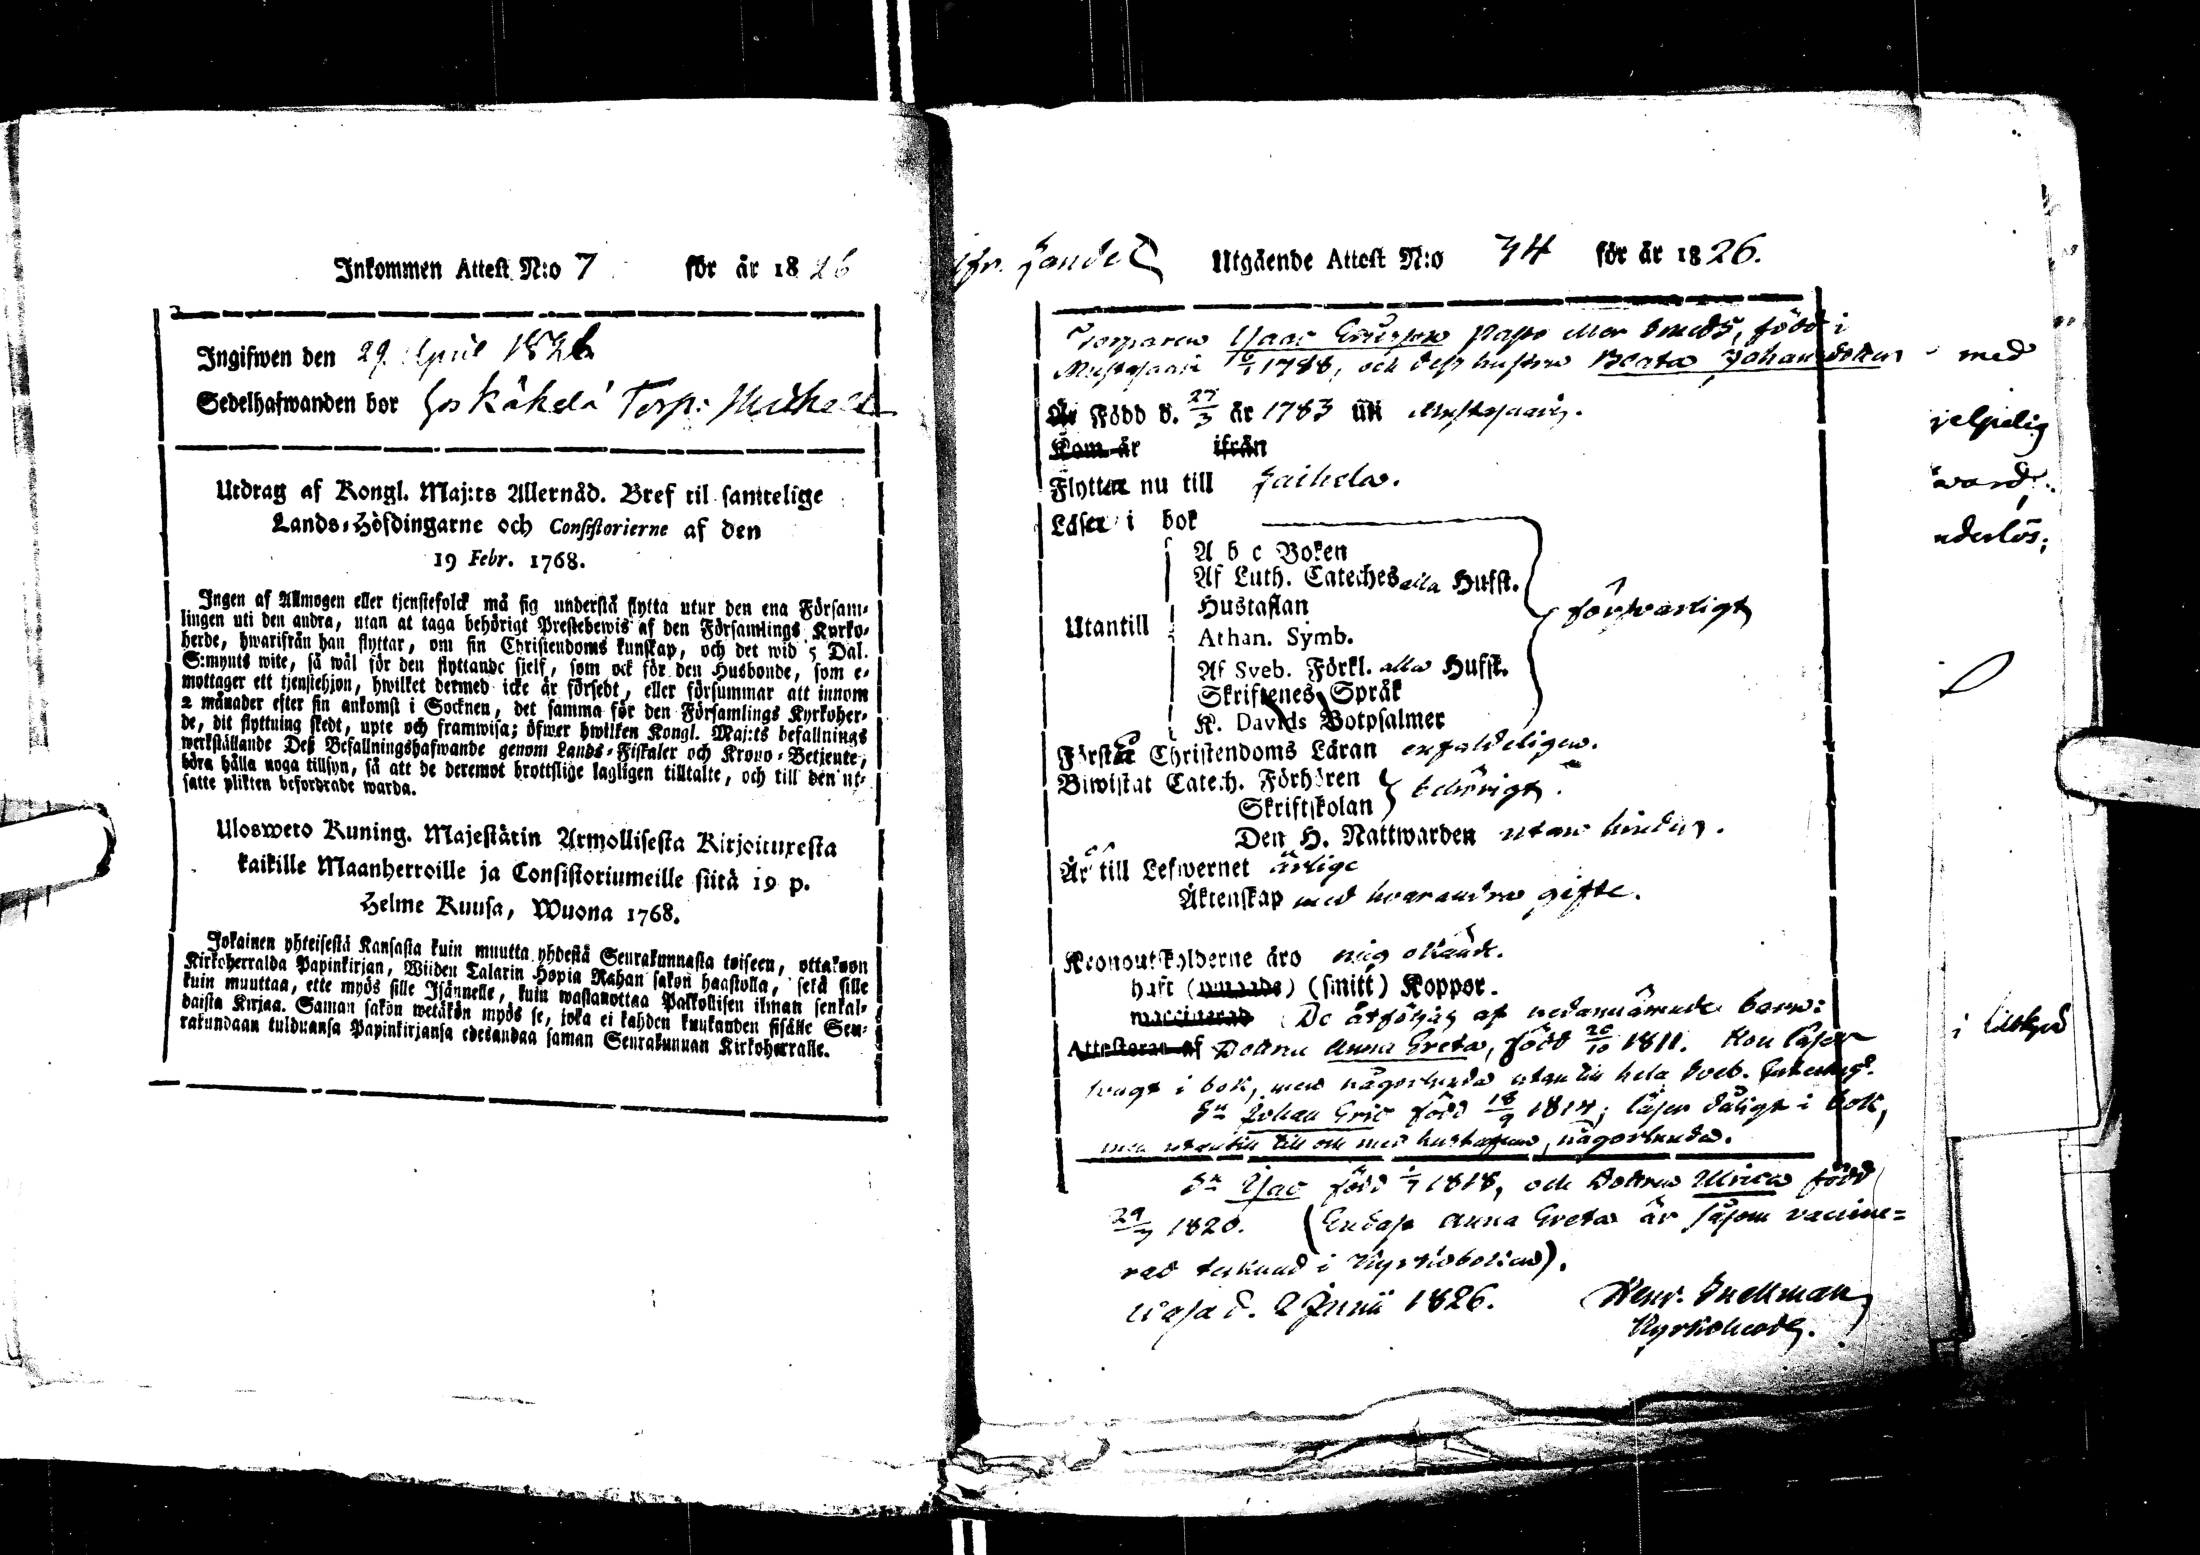 Inkommen Attest N:o 7 för år 1826
Ingifwen den 29 April 1826
Sedelhafwanden bor hos Kåkelä Torp:
Utdrag af Kongl. Maj:ts Allernåd. Bref til samtelige
Lands-Höfdingarne och Consistorierne af den
19 Febr. 1768.
Ingen af Allmogen eller tjenstefolck må sig understå flytta utur den ena Försam-
lingen uti den andra, utan at taga behörigt Prestebewis af den Församlings Kyrko-
herde, hwarifrån han flyttar, om sin Christendoms kunskap, och det wid 5 Dal.
S:mynts wite, så wäl för den flyttande sjelf, som ock för den Husbonde, som e-
mottager ett tjenstehjon, hwilket dermed icke är försedt, eller försummar att innom
2 månader efter sin ankomst i Socknen, det samma för den Församlings Kyrkoher-
de, dit flyttning skedt, upte och framwisa; öfwer hwilken Kongl. Maj:ts befallnings
werkställande Deß Befallningshafwande genom Lands-Fiskaler och Krono-Betjente,
böra hålla noga tillsyn, så att de deremot brottslige lagligen tilltalte, och till den ut-
satte plikten befordrade warda.
Ulosweto Kuning. Majestätin Armollisesta Kirjoituxesta
kaikille Maanherroille ja Consistoriumeille siitä 19 p.
Helme Kuusa, Wuona 1768.
Jokainen yhteisestä Kansasta kuin muutta yhdestä Seurakunnasta toiseen, ottakoon
Kirkoherralda Papinkirjan, Wiiden Talarin Hopia Rahan sakon haastolla, sekä sille
kuin muuttaa, ette myös sille Isännelle, kuin wastanottaa Palkollisen ilman senkal-
daista Kirjaa. Saman sakon wetäkön myös se, joka ei kahden kuukauden sisälle Seu-
rakundaan tulduansa Papinkirjansa edesandaa saman Seurakunnan Kirkoherralle.
Utgående Attest N:o 34 för år 1826.
Torparen Isaac Ericsson Paßo eller Smeds, född i
Mustasaari 6/1 1788, och deß hustru Beata Johansdotter
Är Född d. 27/3 år 1783 uti Mustasaari.
Kom år ifrån
Flytta nu till Laihela.
Läser i bok
A b c Boken
Af Luth. Cateches alla Hufst.
Hustaflan
Utantill
Athan. Symb.
Af Sveb. Förkl. alla Hufst.
Skriftenes Språk
K. Davids Botpsalmer
försvarligt
Förstå Christendoms Läran enfaldeligen.
Biwistat Catech. Förhören
Skriftskolan
behörigt.
Den H. Nattwarden utan hinder.
Är till Lefwernet ärlige
Äktenskap med hvarandra gifte.
Kronoutskylderne äro mig okände.
haft (smitt) Koppor.
vaccinerad De åtföljas af nedannämnde barn:
Attesteras af Dottren Anna Greta, född 20/10 1811. Hon läser
svagt i bok, men någorlunda utantill hela Sveb.
Sn Johan Eric född 18/9 1814; läser dåligt i bok,
men utantill till och med hustaflan, någorlunda.
Sn Isac född 1/7 1818, och Dottren Ulrica född
29/7 1820. (Endast Anna Greta är såsom vaccine=
rad tecknad i Kyrkoboken).
Wasa d. 2 Junii 1826.
Henr. Snellman
Kyrkoherde.
med